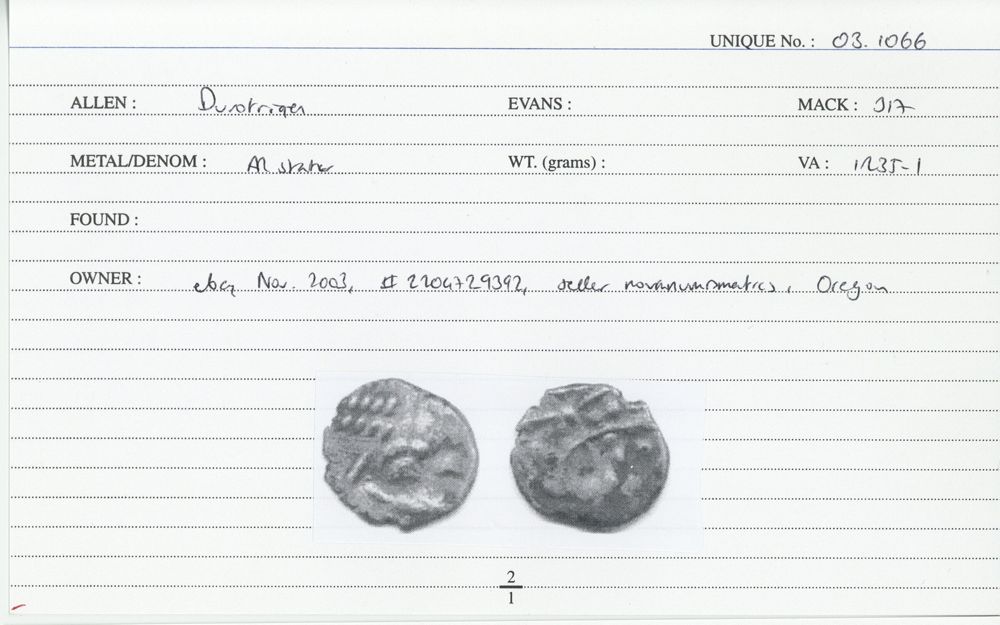 UNIQUE No. : 03.1066
ALLEN : Durotriges EVANS : MACK : 317
METAL/DENOM : AR stater WT. (grams) : VA : 1235-1
FOUND :
OWNER : ebay Nov. 2003, # 2204729392, seller novanumismatics, Oregon
2
1